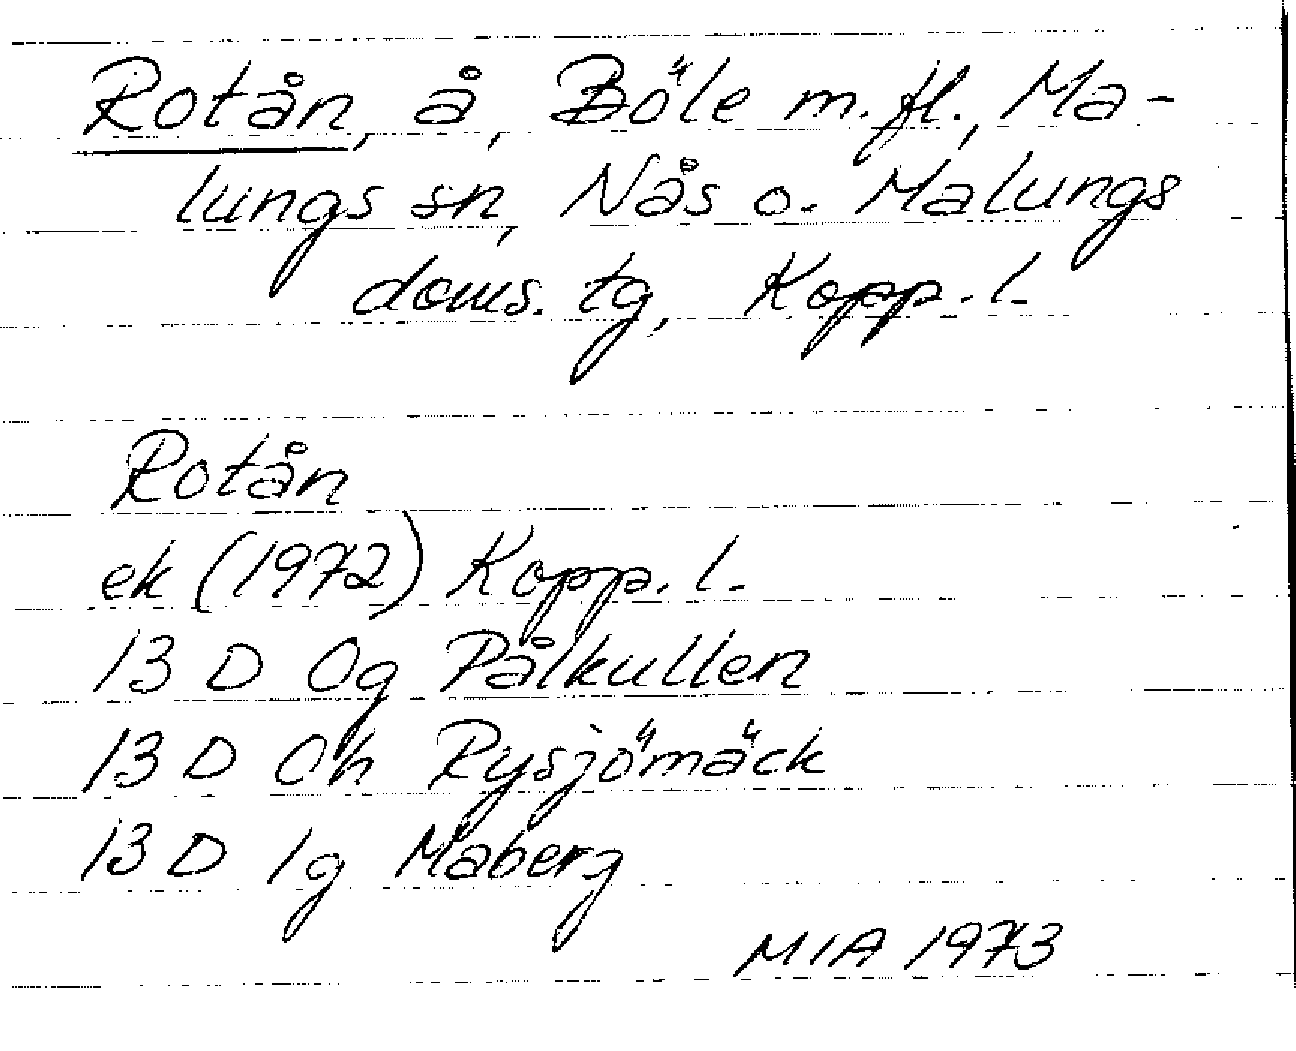 Rotån, å, Böle m.fl., Ma-
lungs sn, Nås o. Malungs
doms. tg, Kopp. l.
Rotån
ek (1972) Kopp. l.
13 D 0g Pålkullen
13 D 0h Rysjömäck
13 D 1g Maberg
MIA 1973